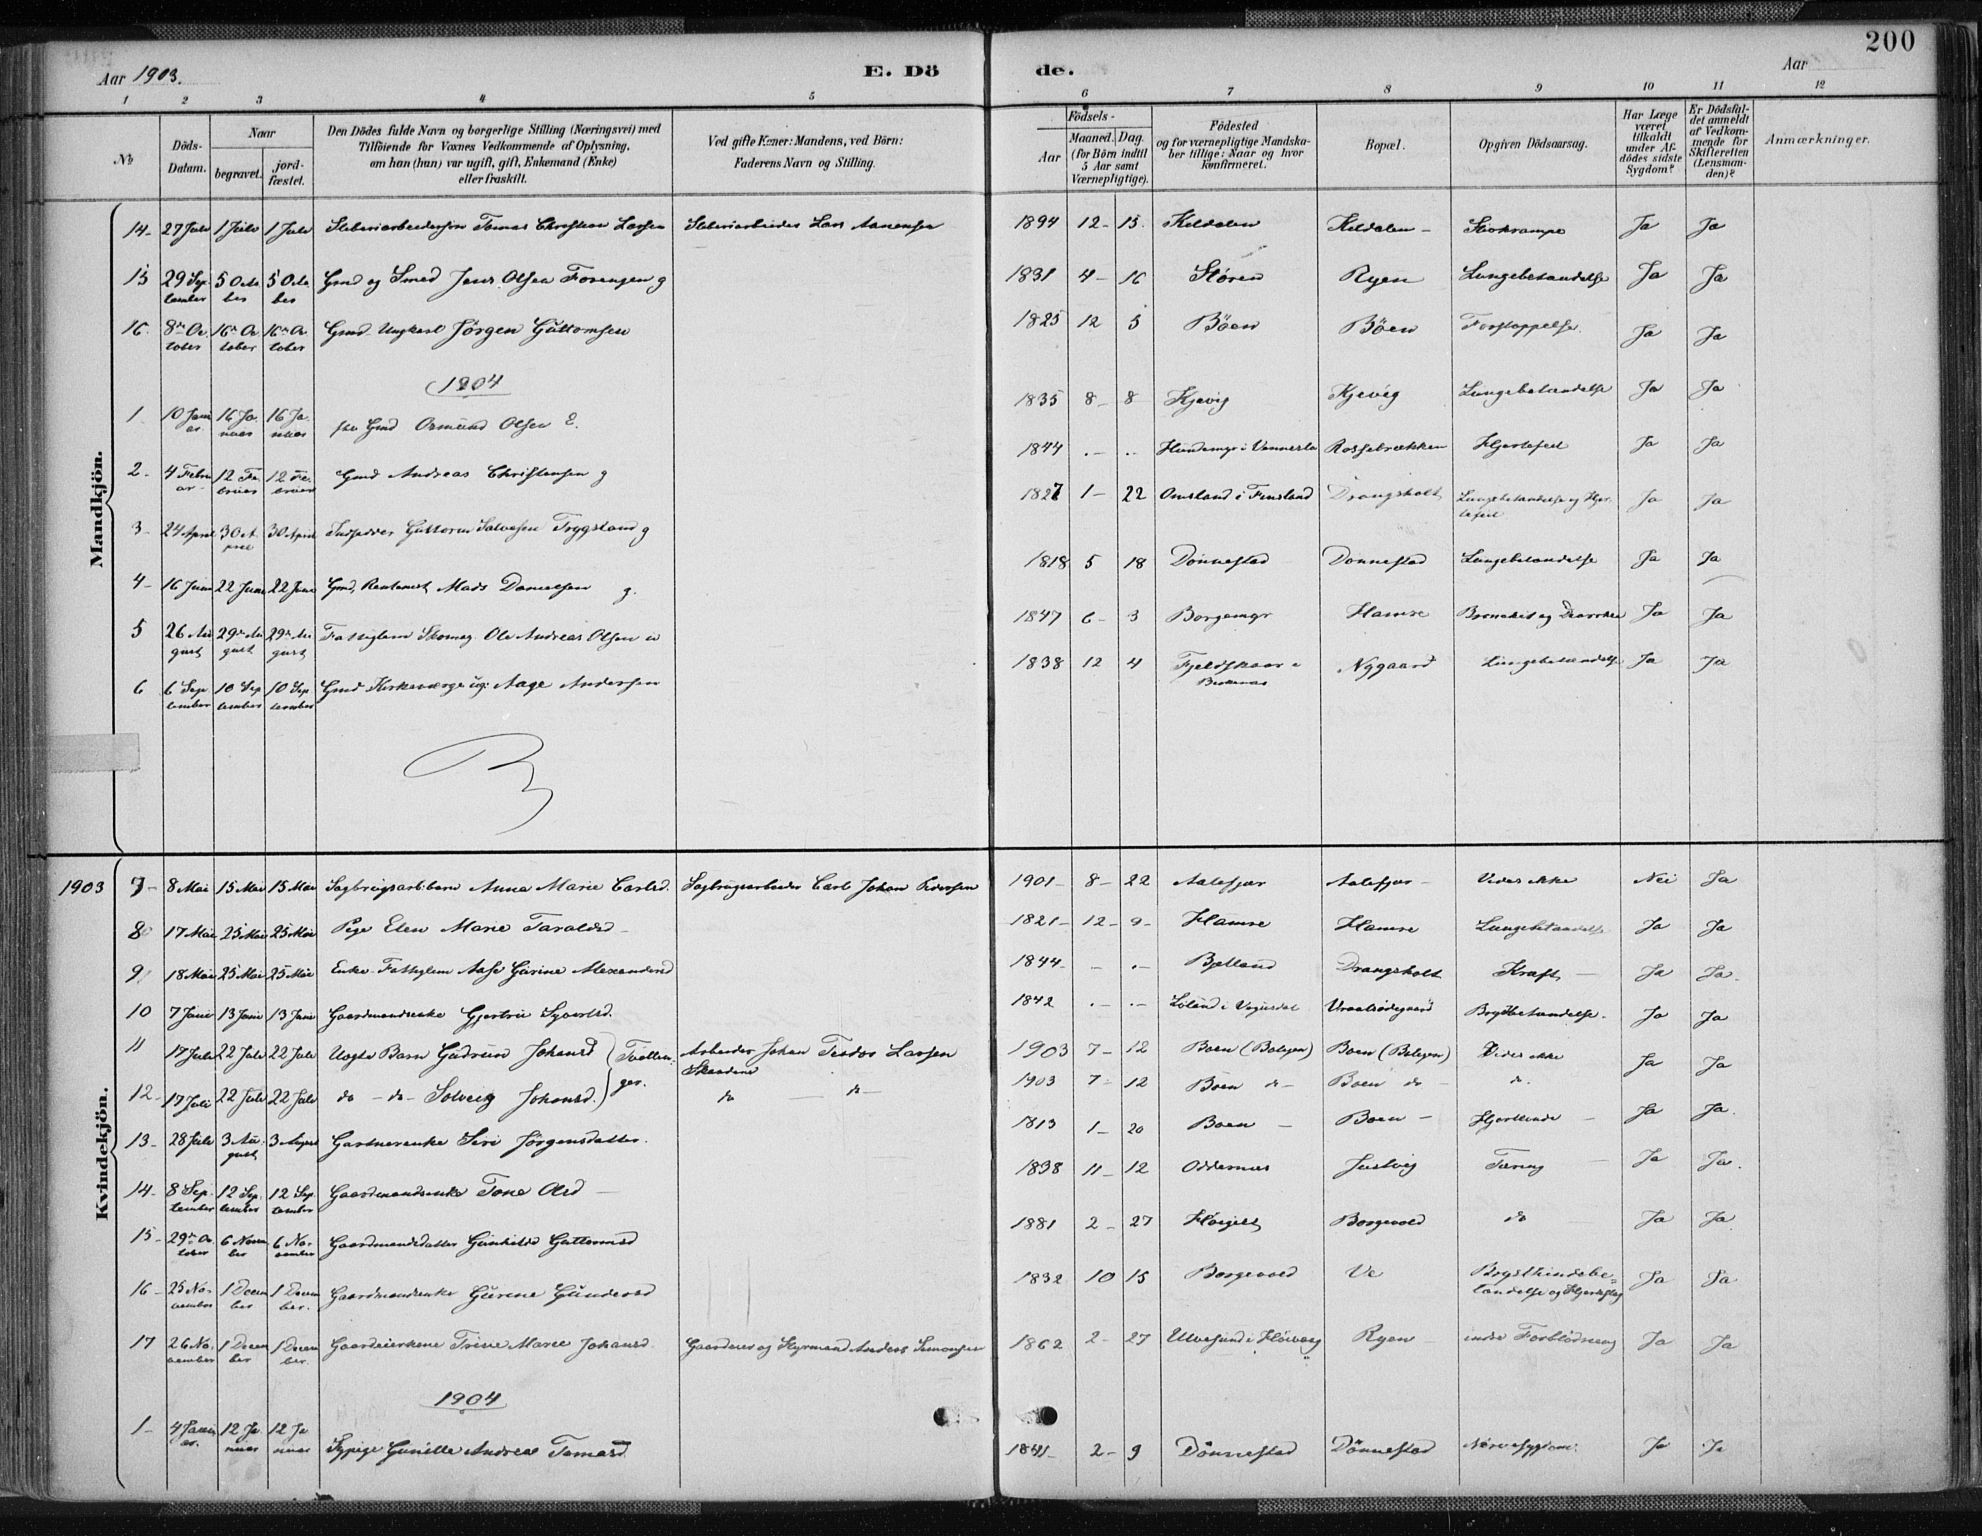 200
Aar 1903. E. Dö de. Aar
1 2 3 4 5 6 7 8 9 10 11 12
№ Döds-Datum. Naar begravet. jord-fæstet. Den Dödes fulde Navn og borgerlige Stilling (Næringsvei) med Tilföiende for Voxnes Vedkommende af Oplysning, om han (hun) var ugift, gift, Enkemand (Enke) eller fraskilt. Ved gifte Koner: Mandens, ved Börn: Faderens Navn og Stilling. Födsels- Aar Maaned. Dag. (for Börn indtil 5 Aar samt Værnepligtige). Födested og for værnepligtige Mandskaber tillige: Naar og hvor konfirmeret. Bopæl. Opgiven Dödsaarsag. Har Læge været tilkaldt under Afdödes sidste Sygdom? Er Dödsfaldet anmeldt af Vedkommende for Skifteretten (Lensmanden)? Anmærkninger.
Mandkjön.
14- 27 1 Juli 1 Juli Tomas Christian Larsen Lars 1894 12- 15. Keldalen Keldalen - Ja Ja
15 29 September 5 October 5 October Gmd og Smed Jens Olsen g 1831 4- 16 Støren Ryen Lungebetændelse Ja Ja
16. 8de October 16de October 16de October Gmd Ungkarl Jörgen Guttormsen 1825 12 5 Böen Böen Forstoppelse Ja Ja
1904
1 10 Januar 16 Januar 16 Januar Gmd Osmund Olsen E. 1835 8- 8 Kjevig Kjevig Lungebetændelse Ja Ja
2- 4 Februar 12 Februar 12 Februar Gmd Andreas Christensen g 1844 Hundemyr i Vennesla Hjertefeil Ja Ja
3- 24 April 30 April 30 April Guttorm Salvesen g 1827 1- 22 Omsland i Finsland Drangsholt Lungebetændelse og Hjertefeil Ja Ja
4- 16 Juni 22 Juni 22 Juni Gmd, Rentenist Mads Danielsen g. 1818 5 18 Dönnestad Dönnestad Lungebetændelse Ja Ja
5 26 August 29de August 29de August Fattiglem Skomag. Ole Andreas Olsen 1847 6- 3 Borgemyr Hamre Ja Ja
6 6 September 10 September 10 September Gmd Kirkeværge ug. Aage Andersen 1838 12 4 Fjeldskaar i Birkenæs Nygaard Lungebetændelse Ja Ja
Kvindekjön.
1903 7- 8 Mai 15 Mai 15 Mai Sagbrugsarb.barn Anna Marie Carlsd. Sagbrugsarbeider Carl Johan Pedersen 1901- 8- 22 Aalefjær Aalefjær - Vides ikke Nei Ja
8 17 Mai 25 Mai 25 Mai Pige Elen Marie Taraldsd - 1821- 12- 9- Hamre Hamre Lungebetændelse Ja Ja
9 18 Mai 25 Mai 25 Mai Enke Fattiglem Aase Gurine Alexandersd 1844- Drangsholt Kræft - Ja Ja
10 7 Juni 13 Juni 13 Juni Gaardmandsenke Gjertrü Syvertsd. 1842 i Vegusdal Brystbetændelse. Ja Ja
11 17 Juli 22 Juli 22 Juli Uægte Barn Gudrun Johansd Tvillinger. Arbeider Johan Teodor Larsen 1903 7- 12 Boen (Bolegen) Boen (Bolegen) Vides ikke Ja Ja
12- 17 Juli 22 Juli 22 Juli do - do- Solveig Johansd. do - do- 1903 7- 12 Boen do- Boen do - do. Ja Ja
13- 28 Juli 3 August 3 August Gartnerenke Siri Jörgensdatter. 1813 1- 20 Boen - Boen - Ja Ja.
14- 8 September 12 September 12 September Gaardmandsenke Tone Olsd - 1838 11- 12 Oddernes Justvig Tæring - Ja Ja.
15- 29de October 6 November 6 November Gaardmandsdatter Gunhilde Guttormsd 1881 2- 27 Borgevold do Ja Ja
16- 25 November 1 December 1 December. Gaardmandsenke Gurine Gundersd 1832 10 15 Borgevold Ve Brysthindebetændelse og Hjerteslag Ja Ja
17 26 November 1 December 1 December. Gaardeierkone Trine Marie Johansd. Gaardeier og Styrmand Anders Simonsen 1862 2- 27 Ulvesund i Höivaag Ryen - indre Forblödning Ja Ja
1904
1- 4 Januar. 12 Januar 12 Januar Sypige Gunille Andrea Tomasd. 1841- 2- 9 Dönnestad Dönnestad Nervesygdom. Ja Ja